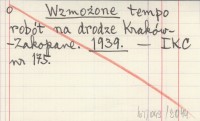 o Wzmożone tempo
robót na drodze Kraków-
-Zakopane. 1939. — IKC
nr 175.